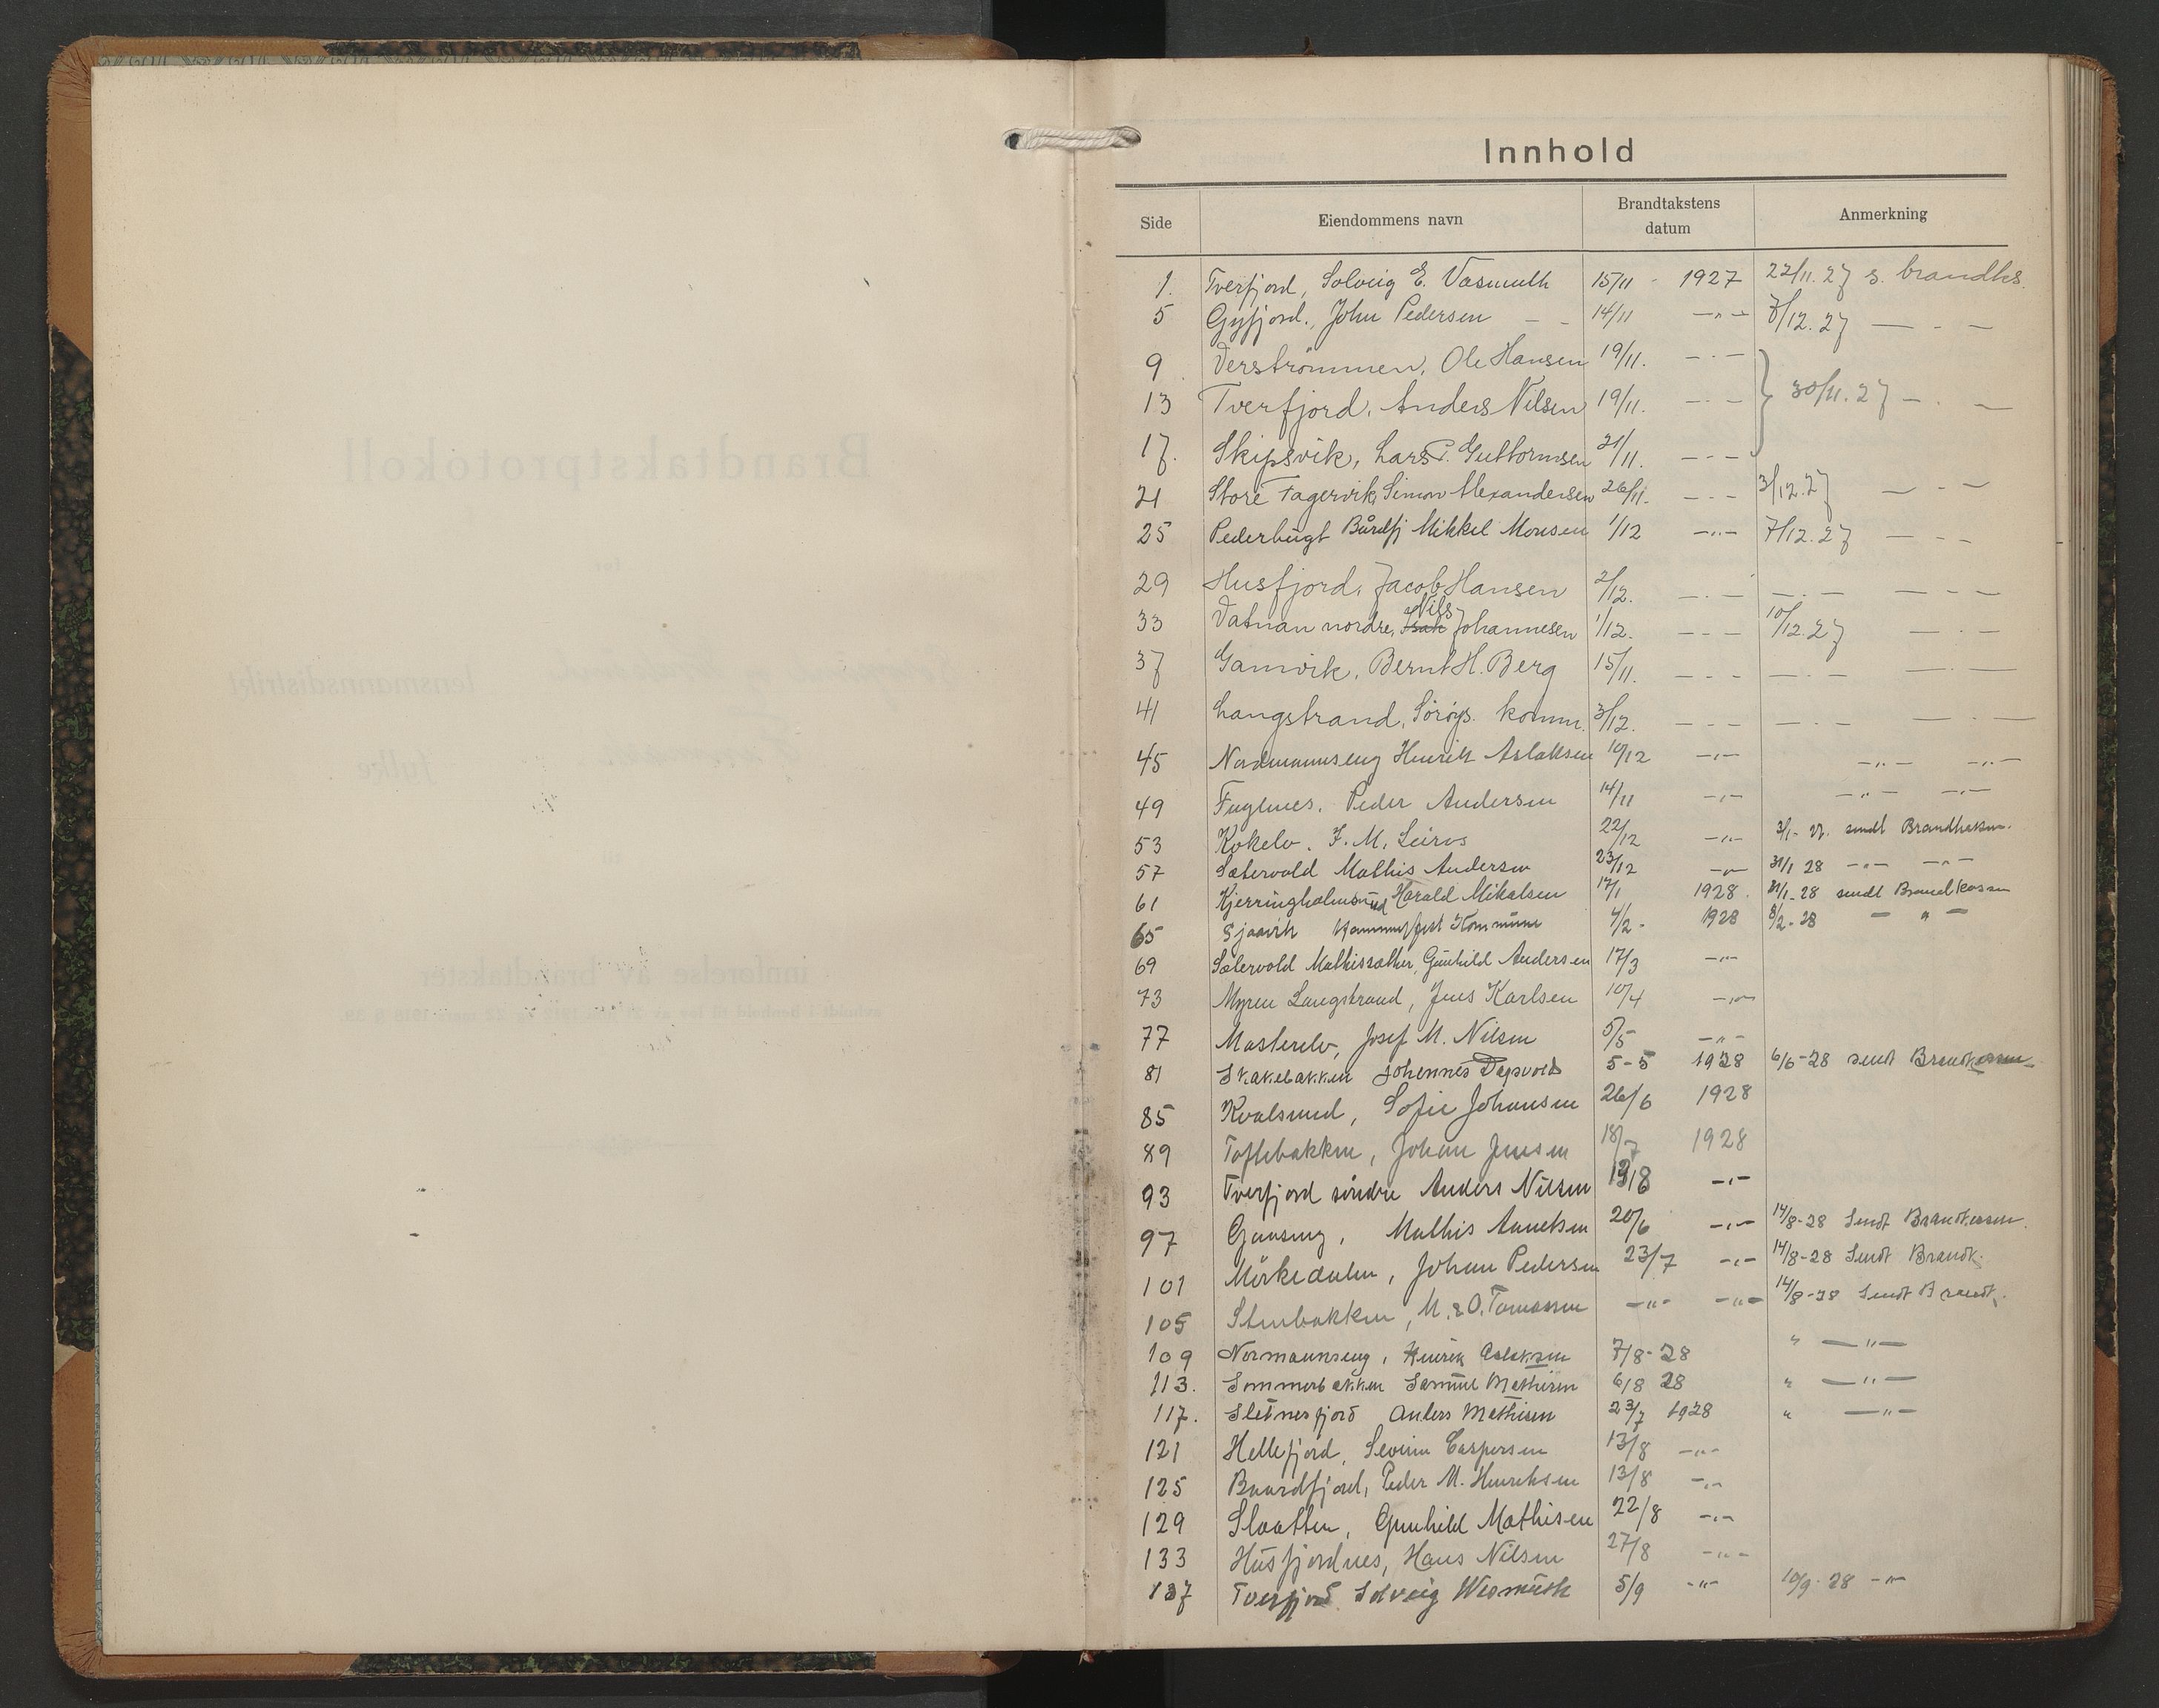 Innhold
Side Eiendommens navn Brandtakstens datum Anmerkning
1. Tverfjord, Solveig E. Vasmuth 15/11 - 1927 22/11.27 s. brandks.
5 Gyfjord., John Pedersen — — 14/11 —„— 7/12.27 — - —
9 Verströmmen, Ole Hansen 19/11. — - —
13 Tverfjord, Anders Nilsen 19/11. — - — } 30/11.27 — - —
17. Skipsvik, Lars P. Guttormsen 21/11. — - —
21 Store Fagervik, Simon Alexandersen 26/11. — - — 3/12.27 — - —
25 Pederbugt Bårdfj Mikkel Monsen 1/12 —„— 7/12.27 — - —
29 Husfjord, Jacob Hansen 2/12. — - — — - — — - —
33 Vatnan nordre, Nils Johannesen 1/12. — - — 10/12.27 — - —
37 Gamvik, Bernt H. Berg 15/11. — - — — - — — - —
41 Langstrand, Söröys. komm. 3/12. — - — — - — — - —
45 Nordmannseng Henrik Aslaksen 10/12 —„— —„— —„—
49 Fuglenes, Peder Andersen 14/11 —„— —„— —„—
53 Kokelv. J. M. Leiros 22/12 —„— 3/1- sendt Brandkassen.
57 Sætervold Mathis Andersen 23/12 —„— 31/1 28 —„— —„—
61 Kjerringholmsund Harald Mikalsen 17/1 1928. 31/1-28 sendt Brandkassen
65 Sjaavik Hammerfest Kommune 4/2- 1928 8/2-28 — „ —
69 Sætervold Mathissæther, Gunhild Andersen 17/3 —„—
73 Myren Langstrand, Jens Karlsen 10/4 —„—
77 Masterelv, Josef M. Nilsen 5/5 —„—
81 Skakebakken Johannes Dagsvold 5-5 1928 6/6-28 sendt Brandkassen
85 Kvalsund, Sofie Johansen 26/6 1928
89 Toftebakken, Johan Jensen 18/7 1928
93 Tverfjord söndre Anders Nilsen 13/8 —„—
97 Gaaseng, Mathis 20/6 —„— 14/8-28 Sendt Brandkassen
101 Mörkedalen, Johan Pedersen 23/7 —„— 14/8-28 Sendt Brandk.
105 Stenbakken, M. & O. Tomassen —„— —„— 14/8-28 Sendt Brandk.
109 Normannseng, Henrik Aslaksen 7/8-28 „ —„—
113. Sommerbakken Samuel Mathisen 6/8 28 „ —„—
117. Sletnesfjord Anders Mathisen 23/7 1928 „ —„—
121 Hellefjord, Severin Caspersen 13/8 —„—
125 Baardfjord, Peder M. Henriksen 13/8 —„—
129 Slaatten, Gunhild Mathisen 22/8 —„—
133 Husfjordnes, Hans Nilsen 27/8 —„—
137 Tverfjord Solveig Wasmuth 5/9 —„— 10/9-28 —„—